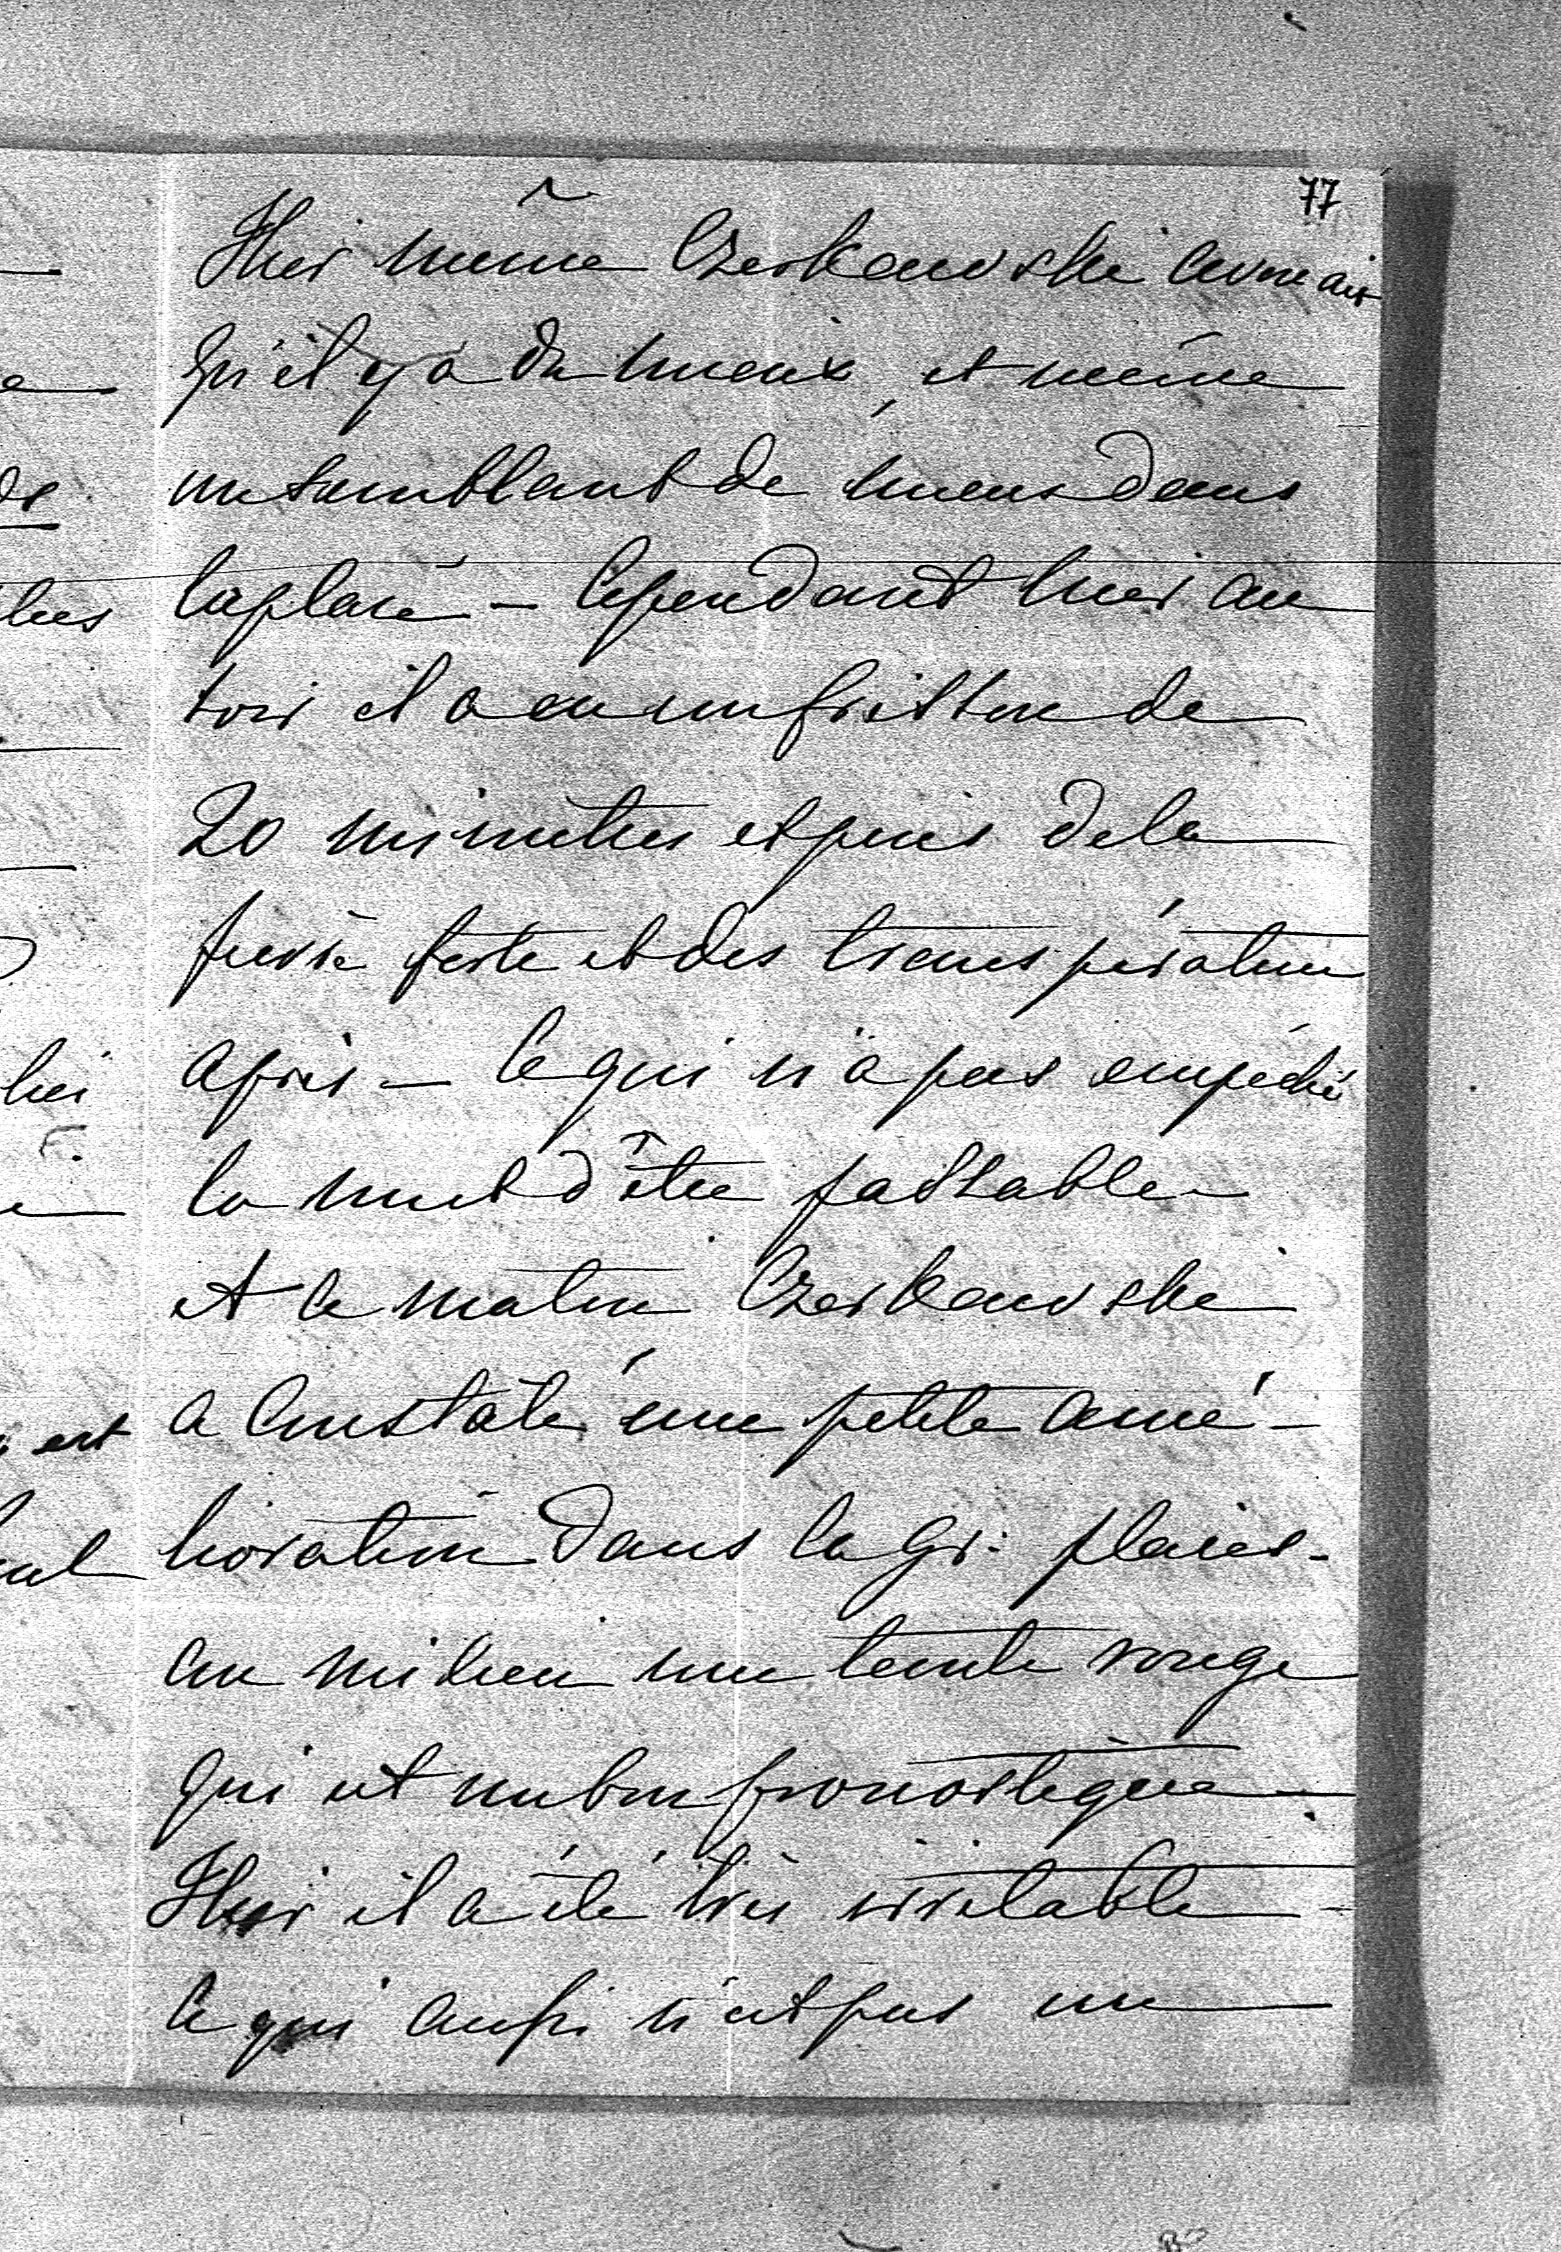 77
Hier même Czerkawski avouait
qu'il y a du mieux, et même
un semblant de mieux dans
la plaie — Cependant hier au
soir il a eu un frisson de
20 minutes et puis de la
fièvre forte et des transpiration
après — Ce qui n'a pas empêché
la nuit d'être passable.
et le matin Czerkawski
a constaté une petite amé-
lioration dans la gr. plaies -
au milieu une teinte rouge
qui est un bon pronostique.
Hier il a été très irritable
ce qui aussi n'est pas un